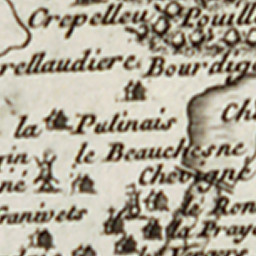 Crepelleu Pouill
rellaudiere Bourdig
la Pulinais Ch
le Beauchesne
né Chevigné
Granivets le Ron
la Praye